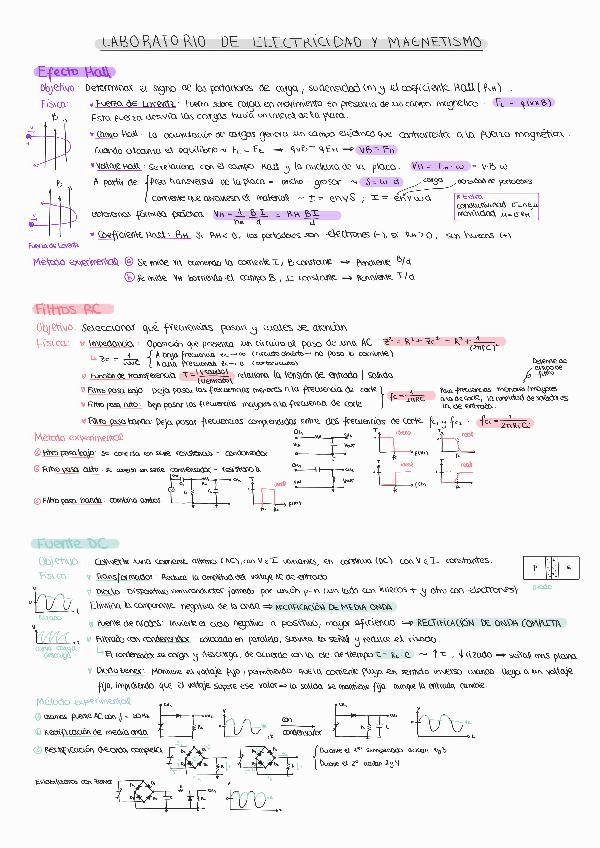 LABORATORIO DE ELECTRICIDAD Y MAGNETISMO
Efecto Hall
Objetivo: Determinar el signo de los portadores de carga, su densidad (n) y el coeficiente Hall (RH).
Física: Fuerza de Lorentz: Fuerza sobre carga en movimiento en presencia de un campo magnético. FL = q(v×B)
Esta fuerza desvía las cargas hacia un lado de la placa.
Campo Hall: La acumulación de cargas genera un campo eléctrico que contrarresta a la fuerza magnética.
Cuando alcanza el equilibrio → FL = FE → qvB = qEH → vB = EH
Voltaje Hall: Se relaciona con el campo Hall y la anchura de la placa. VH = EH · w = vBw
A partir de Área transversal de la placa = ancho · grosor → S = w d
carga densidad de portadores
corriente que atraviesa el material → I = envS; I = envwd
obtenemos fórmula práctica VH = 1/ne BI/d = RH BI/d
Extra
conductividad
movilidad
Coeficiente Hall: RH si RH < 0, los portadores son electrones (-), si RH > 0, son huecos (+)
Fuerza de Lorentz
Método experimental a Se mide VH variando la corriente I, B constante → Pendiente B/d
b Se mide VH barriendo el campo B, I constante → Pendiente I/d
Filtros RC
Objetivo: Seleccionar qué frecuencias pasan y cuáles se atenúan
Física: Impedancia: Oposición que presenta un circuito al paso de una AC
A baja frecuencia zc → ∞ (circuito abierto → no pasa la corriente)
A alta frecuencia zc → 0 (cortocircuito)
Función de transferencia T = |V(salida)| / |V(entrada)| relaciona la tensión de entrada / salida
Filtro paso bajo: Deja pasar las frecuencias menores a la frecuencia de corte
Filtro paso alto: Deja pasar las frecuencias mayores a la frecuencia de corte
fc = 1/2πRC
Depende del tipo de filtro
Filtro paso banda: Deja pasar frecuencias comprendidas entre dos frecuencias de corte fc1 y fc2
Método experimental
① Filtro paso bajo: se conecta en serie resistencia - condensador
② Filtro paso alto: se conecta en serie condensador - resistencia
③ Filtro paso banda: combina ambos
Fuente DC
Objetivo: Convertir una corriente alterna (AC), con V e I variantes, en continua (DC) con V e I constantes.
Física: Transformador: Reduce la amplitud del voltaje AC de entrada
Diodo: Dispositivo semiconductor formado por unión p-n (un lado con huecos + y otro con electrones)
Elimina la componente negativa de la onda ⇒ RECTIFICACIÓN DE MEDIA ONDA
Puente de diodos: Invierte el ciclo negativo a positivo, mayor eficiencia ⇒ RECTIFICACIÓN DE ONDA COMPLETA
Filtrado con condensador: colocado en paralelo, suaviza la señal y reduce el rizado
El condensador se carga y descarga, de acuerdo con la cte de tiempo τ = RL C → ↑τ, ↓rizado → señal más plana
Diodo zener: Mantiene el voltaje fijo, permitiendo que la corriente fluya en sentido inverso cuando llega a un voltaje
fijo, impidiendo que el voltaje supere ese valor → la salida se mantiene fija aunque la entrada cambie.
rizado
curva carga/
descarga
Diodo
Método experimental
① Usamos fuente AC con f = 50 Hz
② Rectificación de media onda
con
condensador
③ Rectificación de onda completa
Durante el 1er semiperiodo actúan 1 y 3
Durante el 2º actúan 2 y 4
Estabilizamos con zener